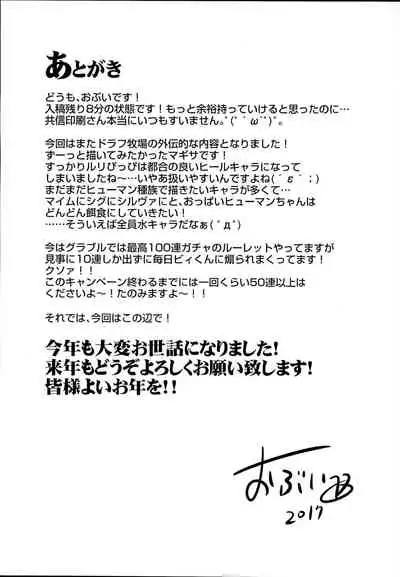 あとがき
どうも、おぶいです!
入稿残り8分の状態です!もっと余裕持っていけると思ったのに…
共信印刷さん本当にいつもすいません｡ﾟ(ﾟ´ω`ﾟ)ﾟ｡
今回はまたドラフ牧場の外伝的な内容となりました!
ずーっと描いてみたかったマギサです!
すっかりルリぴっぴは都合の良いヒールキャラになって
しまいましたね〜…いやあ扱いやすいんですよね(´ε｀;)
まだまだヒューマン種族で描きたいキャラが多くて…
マイムにシグにシルヴァにと、おっぱいヒューマンちゃんは
どんどん餌食にしていきたい!
……そういえば全員水キャラだなぁ(ﾟДﾟ)
今はグラブルでは最高100連ガチャのルーレットやってますが
見事に10連しか出ずに毎日ビィくんに煽られまくってます!
クソァ!!
このキャンペーン終わるまでには一回くらい50連以上は
くださいよ〜!たのみますよ〜!
それでは、今回はこの辺で!
今年も大変お世話になりました!
来年もどうぞよろしくお願い致します!
皆様よいお年を!!
おぶい
2017